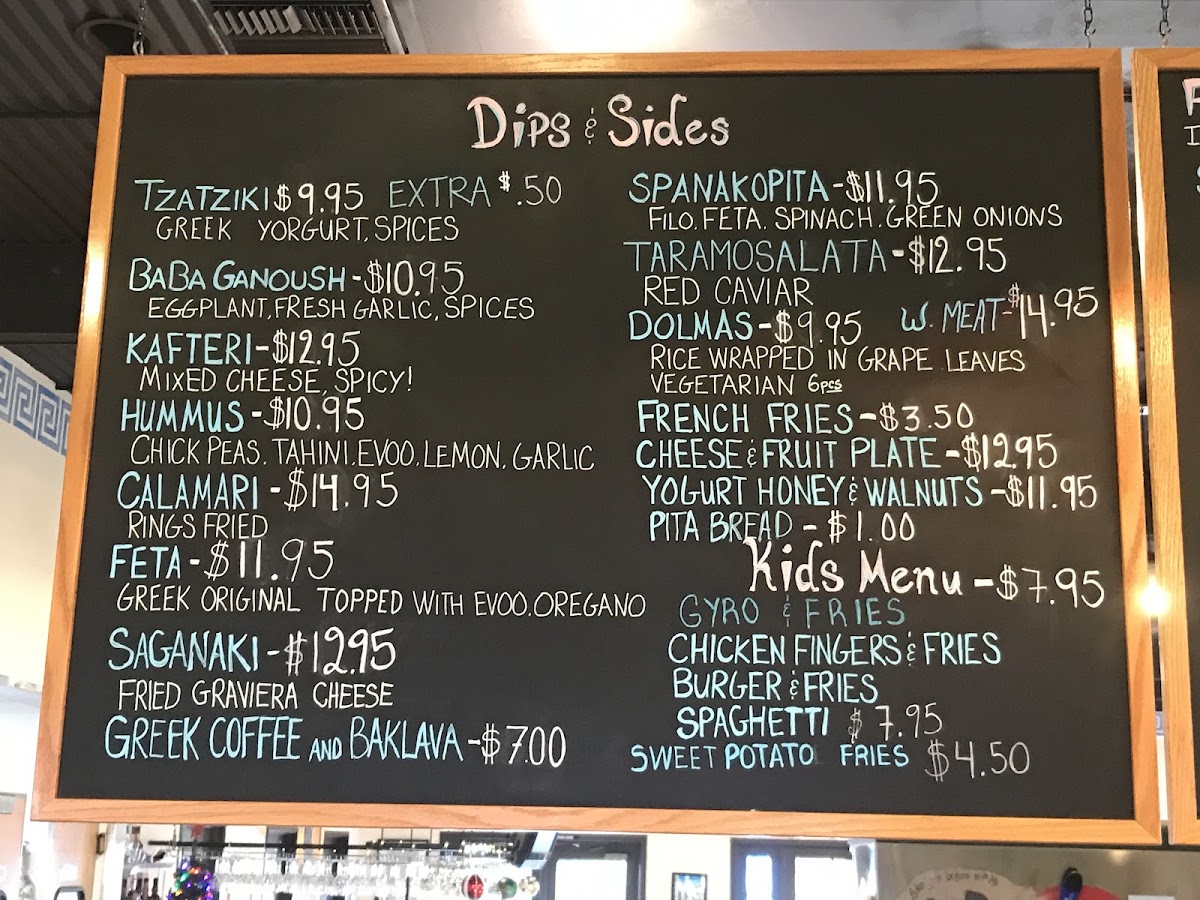 Dips & Sides
TZATZIKI $9.95 EXTRA $.50
GREEK YORGURT, SPICES
BABA GANOUSH - $10.95
EGGPLANT, FRESH GARLIC, SPICES
KAFTERI - $12.95
MIXED CHEESE, SPICY!
HUMMUS - $10.95
CHICK PEAS, TAHINI, EVOO, LEMON, GARLIC
CALAMARI - $14.95
RINGS FRIED
FETA - $11.95
GREEK ORIGINAL TOPPED WITH EVOO, OREGANO
SAGANAKI - $12.95
FRIED GRAVIERA CHEESE
GREEK COFFEE AND BAKLAVA - $7.00
SPANAKOPITA - $11.95
FILO, FETA, SPINACH, GREEN ONIONS
TARAMOSALATA - $12.95
RED CAVIAR
DOLMAS - $9.95 W. MEAT - $14.95
RICE WRAPPED IN GRAPE LEAVES
VEGETARIAN 6pcs
FRENCH FRIES - $3.50
CHEESE & FRUIT PLATE - $12.95
YOGURT HONEY & WALNUTS - $11.95
PITA BREAD - $1.00
Kids Menu - $7.95
GYRO & FRIES
CHICKEN FINGERS & FRIES
BURGER & FRIES
SPAGHETTI $7.95
SWEET POTATO FRIES $4.50